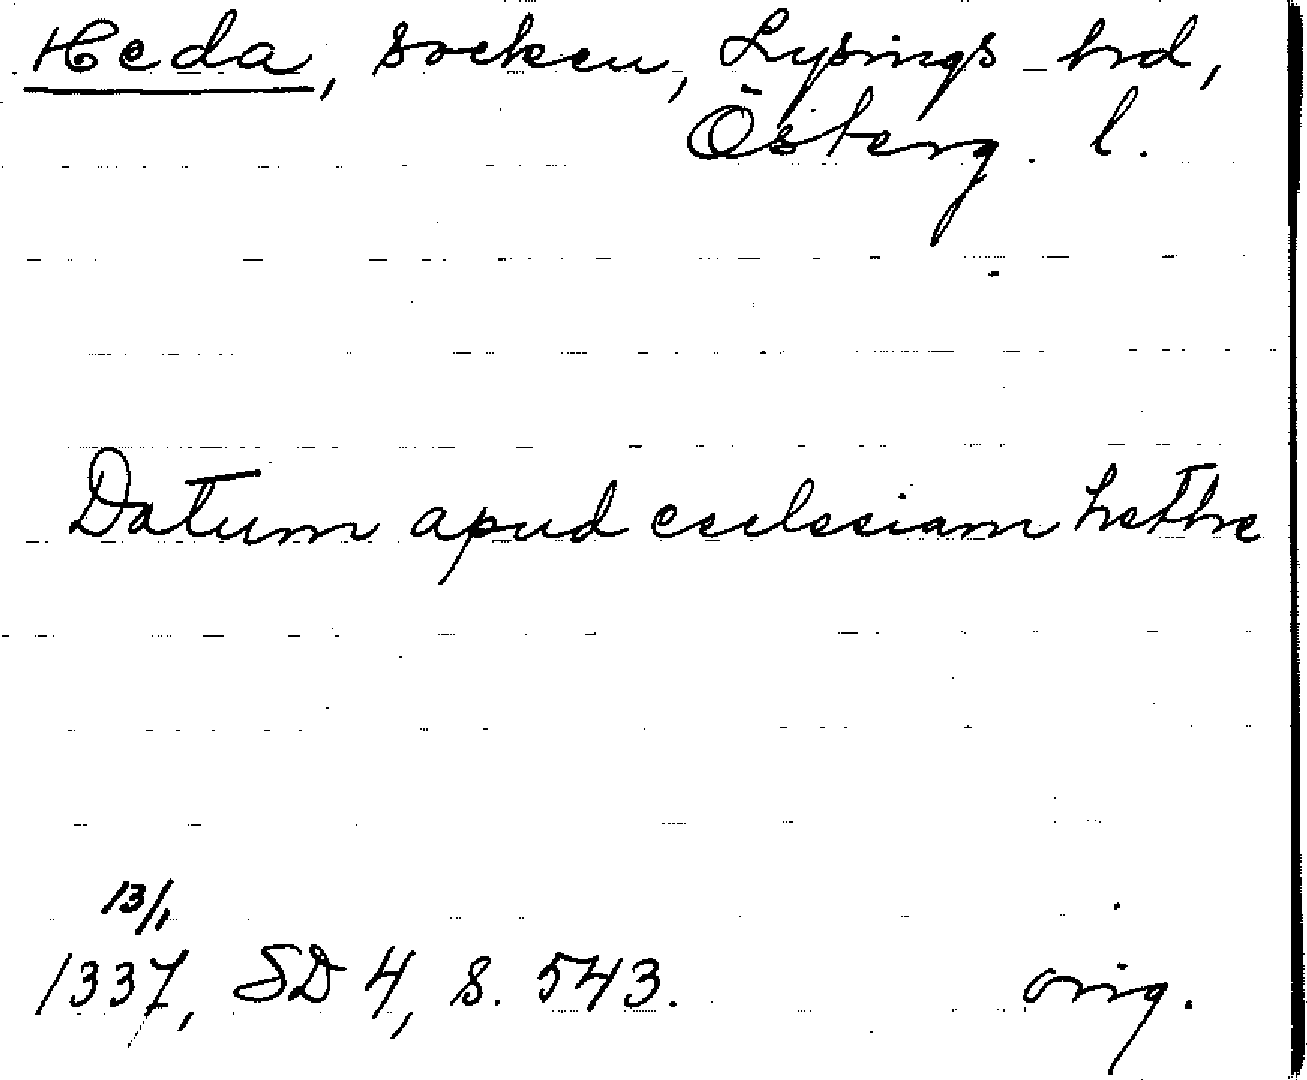 Heda, socken, Lysings hd,
Österg. l.
Datum apud ecclesiam hethe
13/1
1337, SD 4, s. 543. orig.